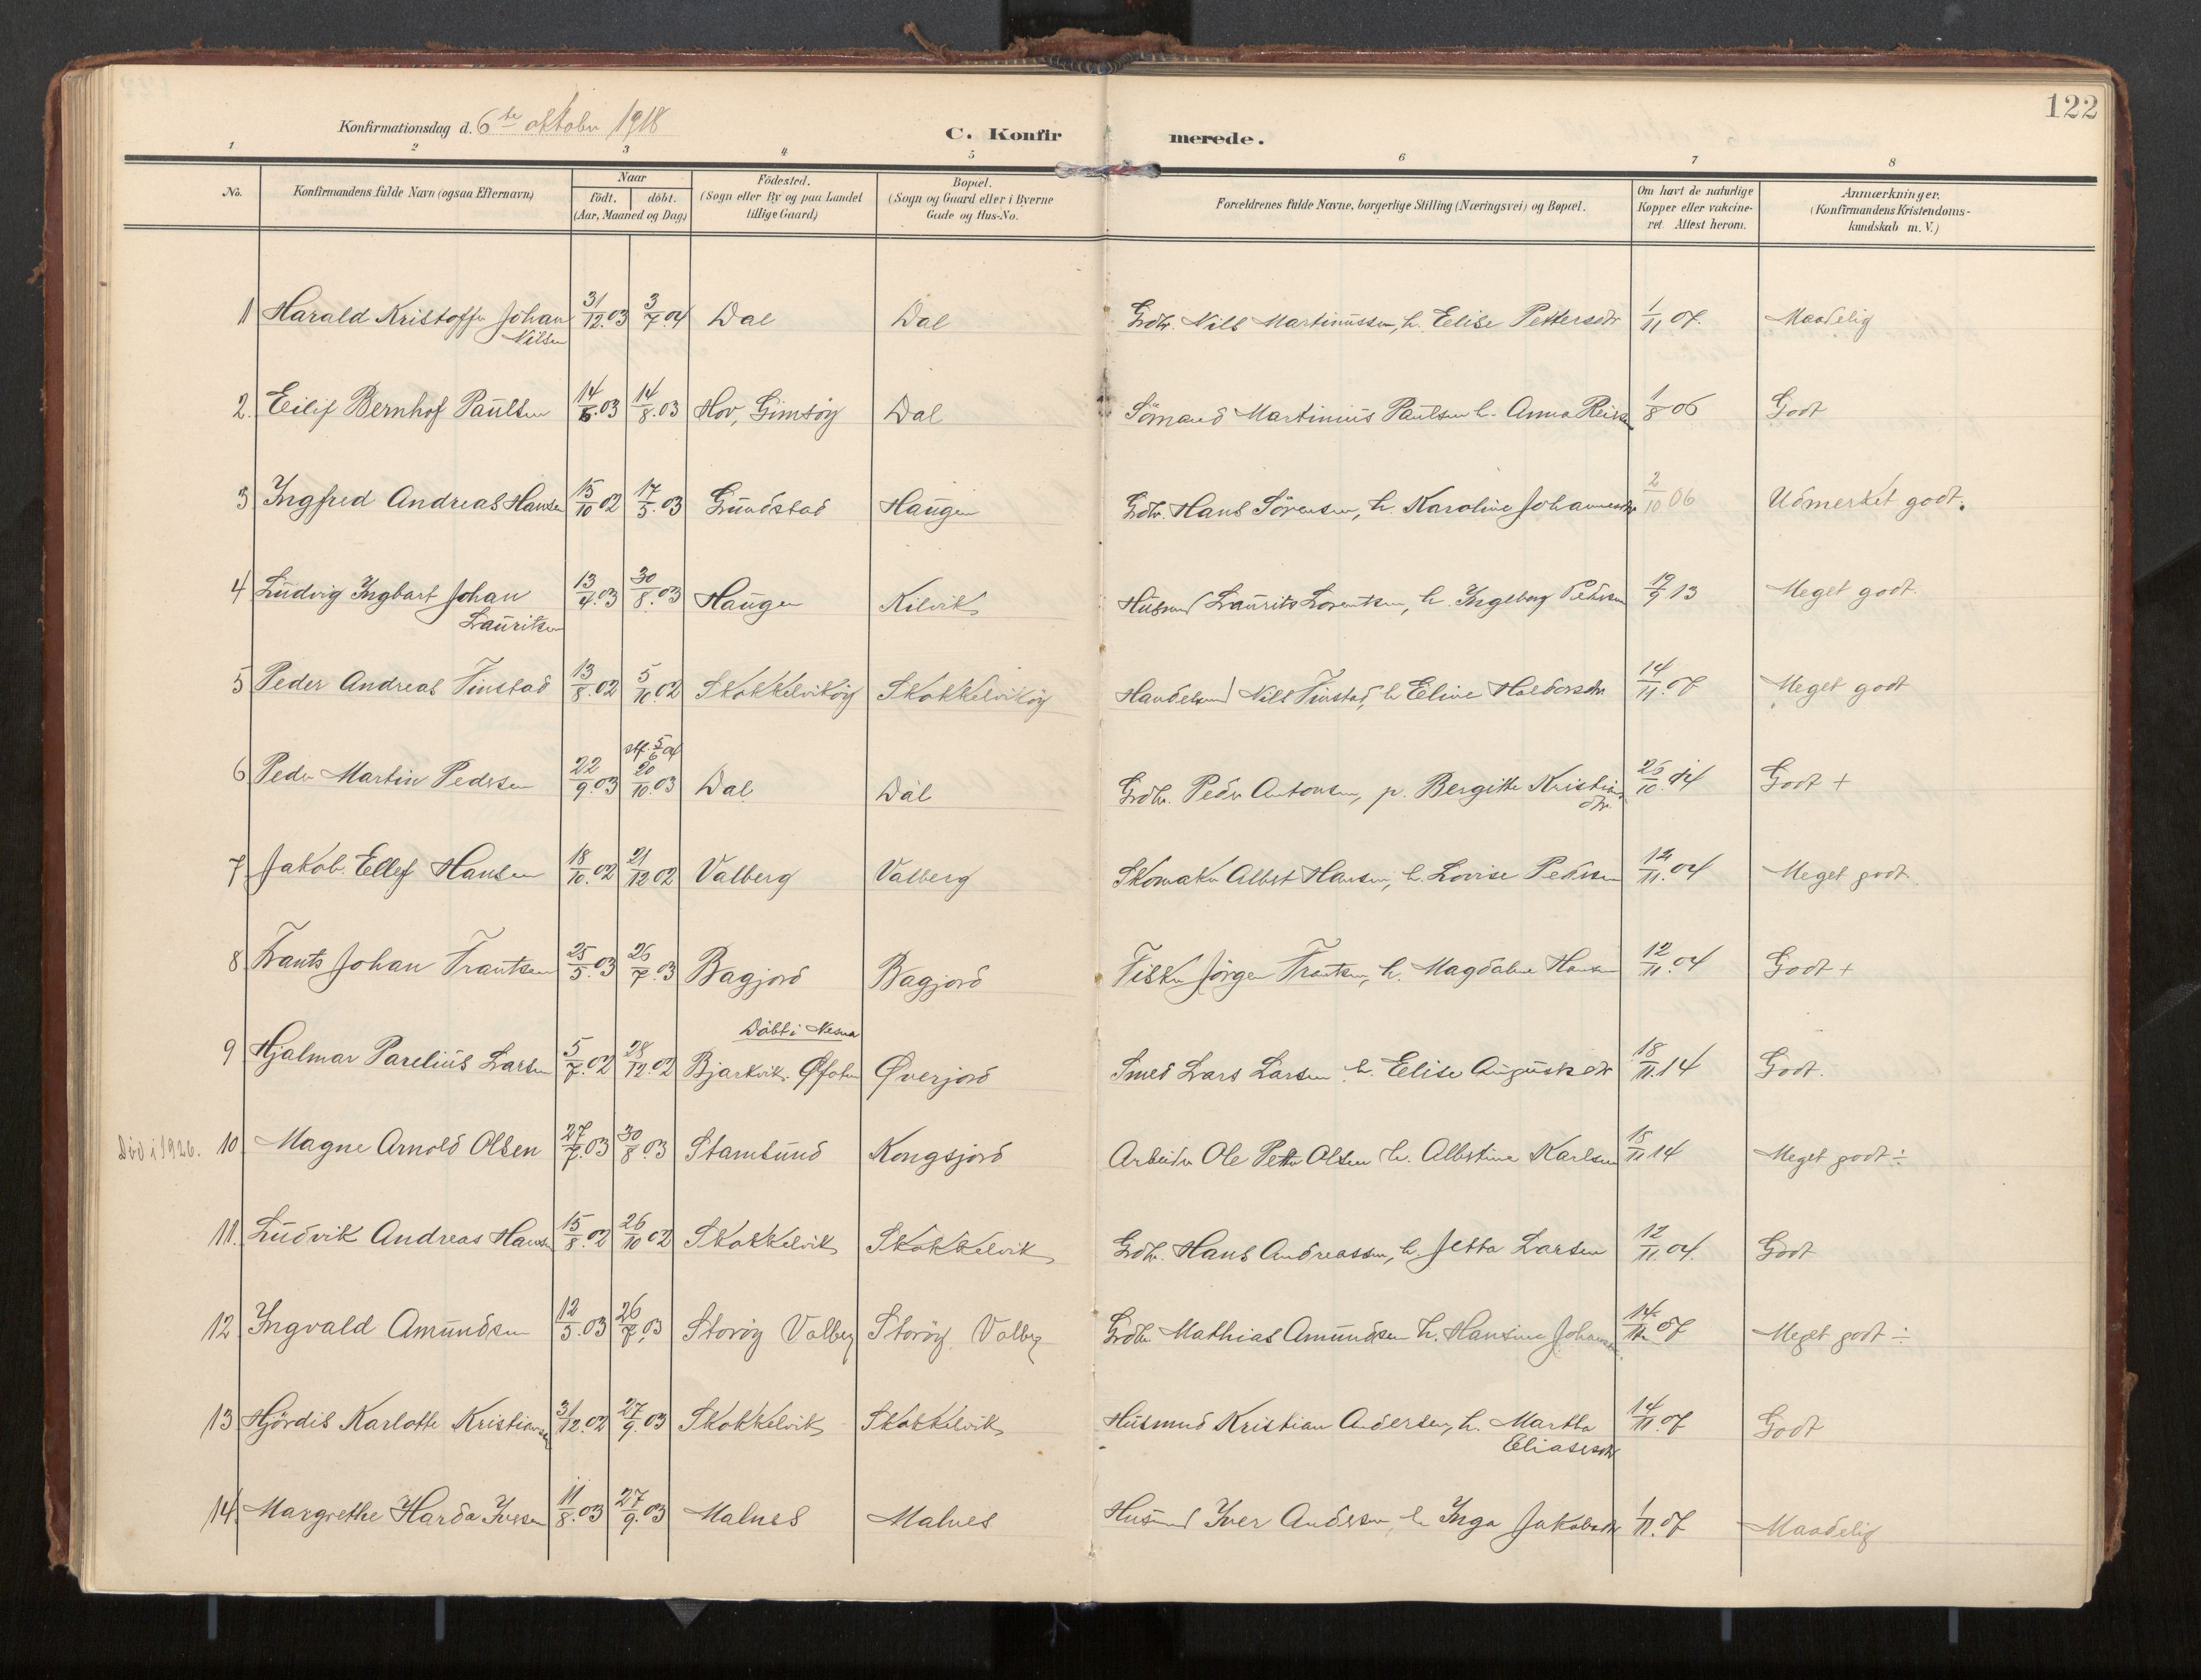 122
Konfirmationsdag d. 6te oktober 1918
C. Konfirmerede.
1 2 3 4 5 6 7 8
No. Konfirmandens fulde Navn (ogsaa Efternavn) Naar født. døbt. (Aar, Maaned og Dag) Fødested. (Sogn eller By og paa Landet tillige Gaard) Bopæl. (Sogn og Gaard eller i Byerne Gade og Hus-No. Forældrenes fulde Navne, borgerlige Stilling (Næringsvei) og Bopæl. Om havt de naturlige Kopper eller vakcineret. Attest herom. Anmærkninger. (Konfirmandens Kristendomskundskab m. V.)
1 Harald Kristoffer Johan Nilsen 31/12.03 3/7.04 Dal Dal Grdbr. Nils Martinussen, h. Elise Pettersdtr 1/11 07. Maadelig
2. Eilif Bernhof Paulsen 14/6.03 14/8.03 Hov, Gimsöy Dal Sömand Martinus Paulsen h. Anna 1/8 06 Godt
3 Ingfred Andreas Hansen 15/10 02 17/5.03 Grundstad Haugen Grdbr. Hans Sörensen, h. Karoline Johannesdtr 2/10 06 Udmerket godt.
4 Ludvig Ingbart Johan Lauritsen 13/4.03 30/8.03 Haugen Kilvik Husmd Laurits Lorentsen, h. Ingeborg Pedersen 19/9 13 Meget godt.
5 Peder Andreas Finstad 13/8.02 5/10.02 Skokkelviköy Skokkelviköy Handelsmd Nils Finstad, h Eline Haldorsdtr 14/11.07 Meget godt
6 Peder Martin Pedersen 22/9.03 stf. 5/6 04 20/10.03 Dal Dal Grdbr. Peder Antonsen, p. Bergitte Kristiansdtr. 26/10.14 Godt +
7 Jakob Ellef Hansen 18/10.02 21/12 02 Valberg Valberg Skomaker Albert Hansen, h. Lovise Pedersen 12/11.04 Meget godt.
8 Frants Johan Frantsen 25/5.03 26/7.03 Bagjord Bagjord Fisker Jörgen Frantsen, h. Magdalene Hansen 12/11.04 Godt +
9 Hjalmar Parelius Larsen 5/7.02 28/12.02 Döbt i Nesna Bjerkvik. Øfoten Øverjord Smed Lars Larsen h. Elise Augustsdtr 18/11.14 Godt.
Död i 1926. 10 Magne Arnold Olsen 27/7.03 30/8.03 Stamsund Kongsjord Arbeider Ole Petter Olsen h. Albertine Karlsen 18/11 14 Meget godt ÷
11. Ludvik Andreas Hansen 15/8.02 26/10 02 Skokkelvik Skokkelvik Grdbr. Hans Andreassen, h. Jetta Larsen 12/11.04. Godt
12 Ingvald Amundsen 12/5.03 26/7.03 Storöy Valberg Storöy Valberg Grdbr Mathias Amundsen h. Hansine 14/11 07 Meget godt ÷
13 Hjördis Karlotte Kristiansen 31/12.02 27/9.03 Skokkelvik Skokkelvik Husmnd Kristian Andersen, h. Martha Eliasesdtr 14/11.07 Godt
14. Margrethe Harda Iversen 11/8.03 27/9.03 Malnes Malnes Husmd Iver Andersen, h Inga Jakobsdtr 1/11.07 Maadelig